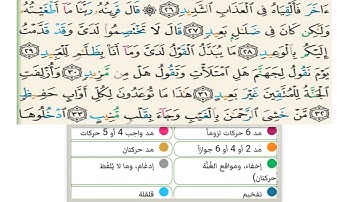 ءَاخَرَ فَأَلْقِيَاهُ فِي الْعَذَابِ الشَّدِيدِ ٢٦ قَالَ قَرِينُهُ رَبَّنَا مَا أَطْغَيْتُهُ
وَلَكِن كَانَ فِي ضَلَالٍ بَعِيدٍ ٢٧ قَالَ لَا تَخْتَصِمُوا لَدَيَّ وَقَدْ قَدَّمْتُ
إِلَيْكُم بِالْوَعِيدِ ٢٨ مَا يُبَدَّلُ الْقَوْلُ لَدَيَّ وَمَا أَنَا بِظَلَّامٍ لِّلْعَبِيدِ ٢٩
يَوْمَ نَقُولُ لِجَهَنَّمَ هَلِ امْتَلَأْتِ وَتَقُولُ هَلْ مِن مَّزِيدٍ ٣٠ وَأُزْلِفَتِ
الْجَنَّةُ لِلْمُتَّقِينَ غَيْرَ بَعِيدٍ ٣١ هَذَا مَا تُوعَدُونَ لِكُلِّ أَوَّابٍ حَفِيظٍ
٣٢ مَّنْ خَشِيَ الرَّحْمَنَ بِالْغَيْبِ وَجَاءَ بِقَلْبٍ مُّنِيبٍ ٣٣ ادْخُلُوهَا
مد 6 حركات لزوماً مد واجب 4 أو 5 حركات
مد 2 أو 4 أو 6 جوازاً مد حركتان
إخفاء، ومواقع الغُنَّة إدغام، وما لا يُلفَظ
(حركتان)
تفخيم قلقلة